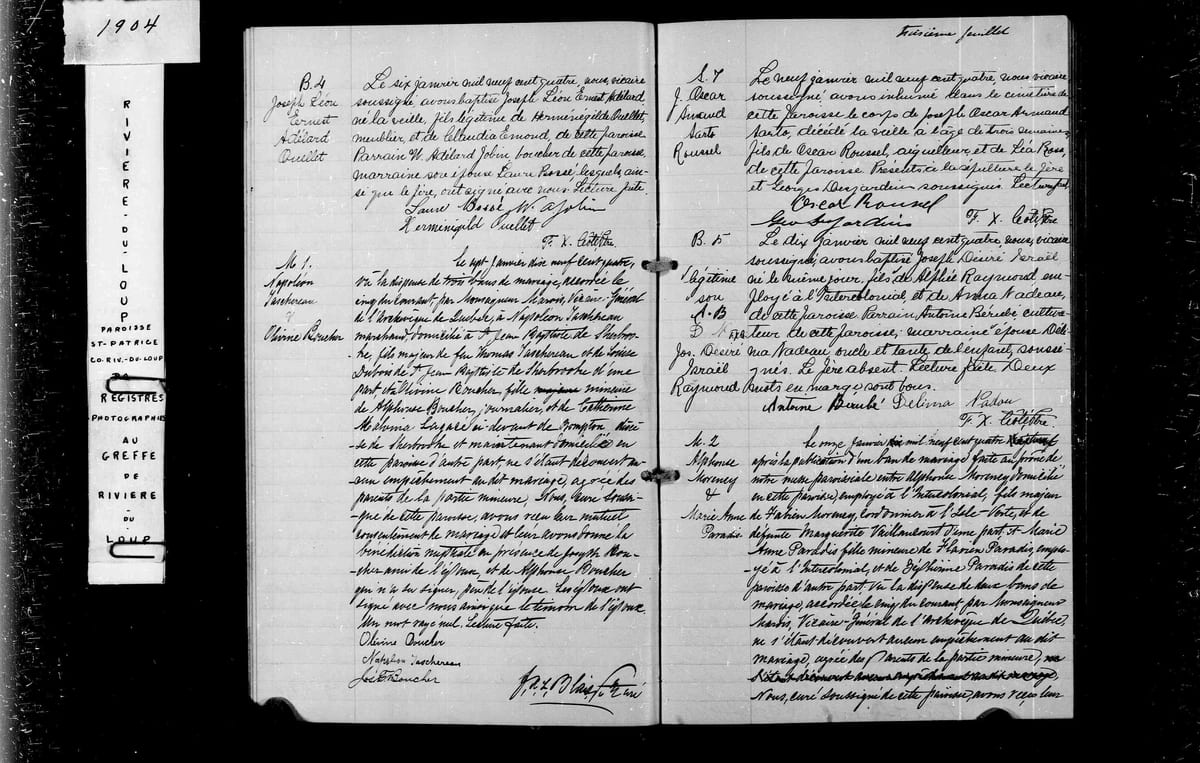 1904
RIVIERE-DU-LOUP
PAROISSE
ST-PATRICE
CO. RIV.-DU-LOUP
REGISTRES
PHOTOGRAPHIES
AU
GREFFE
DE
RIVIERE
DU
LOUP
B. 4
Joseph Léon
Ernest
Adélard
Ouellet
Le six janvier mil neuf cent quatre, nous, vicaire
soussigné avons baptisé Joseph Léon Ernest Adélard,
né la veille, fils légitime de Herménégilde Ouellet
meublier, et de Claudia Emond, de cette paroisse
Parrain W. Adélard Jobin, boucher de cette paroisse,
marraine son épouse Laure Bossé, lesquels, ain-
si que le père, ont signé avec nous. Lecture faite.
Laure Bossé W. A Jobin
Herminégild Ouellet
F. X.
M 1.
Napoléon
Taschereau
&
Olivine Boucher
Le sept Janvier dix neuf cent quatre,
Vu la dispense de trois bans de mariage, accordée le
cinq du courant, par Monseigneur Marois, Vicaire-Général
de l'Archevêque de Québec, à Napoléon Taschereau
marchand, domicilié à St Jean Baptiste de Sherbroo-
-ke, fils majeur de feu Thomas Taschereau et de Louise
Dubois de St Jean Baptiste de Sherbrooke d'une
part et Olivine Boucher, fille majeure mineure
de Alphonse Boucher, journalier, et de
Lagacé ci-devant de Brompton,
de Sherbrooke et maintenant domiciliée en
cette paroisse d'autre part, ne s'étant découvert au-
-cun empêchement au dit mariage, agréé des
parents de la partie mineure, Nous, curé soussi-
-gné de cette paroisse, avons reçu leur mutuel
consentement de mariage et leur avons donné la
bénédiction nuptiale en présence de Joseph Bou-
-cher ami de l'époux, et de Alphonse Boucher
qui n'a su signer, père de l'épouse. Les époux ont
signé avec nous ainsi que le témoin de l'époux.
Un mot rayé nul. Lecture faite.
Olivine Boucher
Napoléon Taschereau
Jos Boucher
Blais Ptre Curé
troisième feuillet
S. 7
J. Oscar
Armand
Sarto
Roussel
Le neuf janvier mil neuf cent quatre nous vicaire
soussigné avons inhumé dans le cimetière de
cette paroisse le corps de Joseph Oscar Armand
Sarto, décédé la veille à l'âge de trois semaines,
fils de Oscar Roussel, aiguilleur, et de Léa Ross,
de cette paroisse. Présents à la sépulture le père
et Georges Desjardins soussignés. Lecture faite
Oscar Roussel
Geo Desjardins F. X.
B. 5
légitime
son
A-B
Jos. Désiré
Israël
Raymond
Le dix janvier mil neuf cent quatre nous, vicaire
soussigné, avons baptisé Joseph Désiré Israël
né le même jour, fils de Alphée Raymond em-
ployé à l'Intercolonial, et de Anna Nadeau,
de cette paroisse Parrain, Antoine Bérubé cultiva-
teur de cette paroisse, marraine épouse Déli-
ma Nadeau oncle et tante de l'enfant, soussi-
gnés. Le père absent. Lecture faite Deux
mots en marge sont bons.
Antoine Bérubé Délima Nadou
F. X.
M. 2
Alphonse
Morency
&
Marie Anne
Paradis
Le onze Janvier mil neuf cent quatre
après la publication d'un ban de mariage faite au prône de
notre messe paroissiale entre Alphonse Morency domicilié
en cette paroisse, employé à l'Intercolonial, fils majeur
de Fabien Morency, cordonnier à l'Isle-Verte, et de
défunte Marguerite Vaillancourt d'une part, et Marie
Anne Paradis fille mineure de Flavien Paradis, emplo-
-yé à l'Intercolonial, et de Paradis de cette
paroisse d'autre part, Vu la dispense de deux bans de
mariage, accordée le cinq du courant, par Monseigneur
Marois, Vicaire-Général de l'Archevêque de Québec,
ne s'étant découvert aucun empêchement au dit
mariage, agréé des parents de la partie mineure,
Nous, curé soussigné de cette paroisse, avons reçu leur